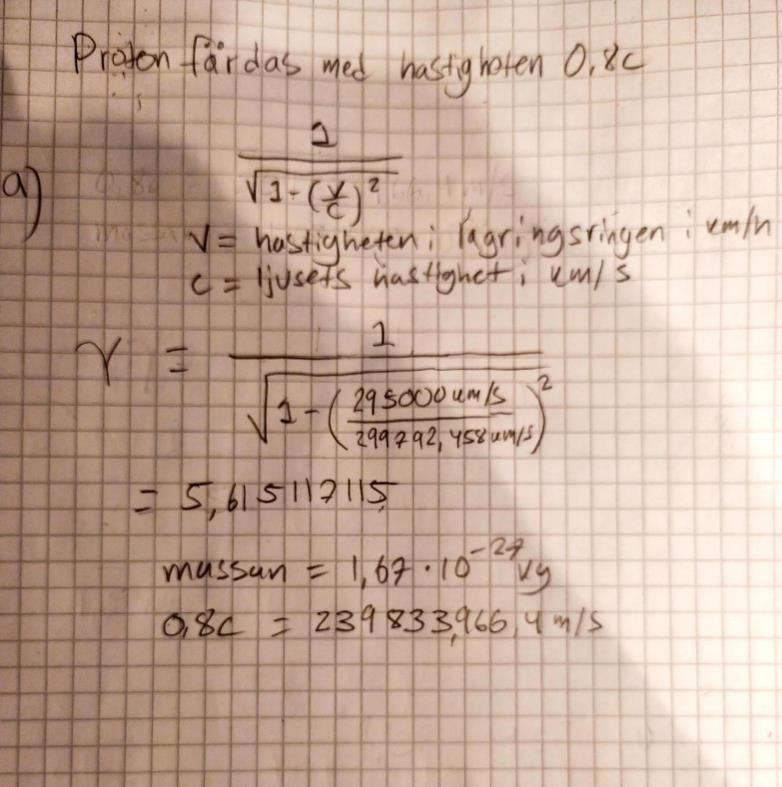 Proton färdas med hastigheten 0,8c
a) 1 / √1-(v/c)²
v = hastigheten i lagringsringen i km/h
c = ljusets hastighet i km/s
γ = 1 / √1-(295000 km/s / 299792,458 km/s)²
= 5,615117115
massan = 1,67 · 10⁻²⁷ kg
0,8c = 239833,966,4 m/s